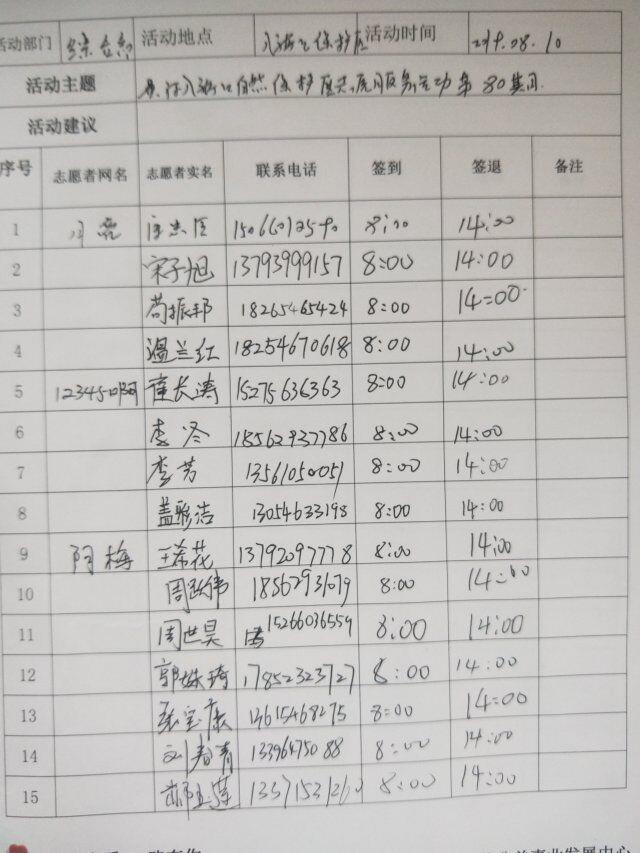 活动部门 综合部 活动地点 入海口保护区 活动时间 2019.08.10
活动主题 入海口自然保护区 服务活动第80集
活动建议
序号 志愿者网名 志愿者实名 联系电话 签到 签退 备注
1 8:00 14:00
2 宋子旭 13793999157 8:00 14:00
3 苟振邦 18265465424 8:00 14:00
4 温兰红 18254670618 8:00 14:00
5 123450啊 崔长涛 15275636363 8:00 14:00
6 李冬 18562937786 8:00 14:00
7 李芳 13561050051 8:00 14:00
8 盖雅洁 13054633198 8:00 14:00
9 阿梅 王希花 13792097778 8:00 14:00
10 周跃伟 18567931079 8:00 14:00
11 周世昊 15266036559 8:00 14:00
12 郭姝琦 17852323727 8:00 14:00
13 张宝康 13615468275 8:00 14:00
14 刘春青 13396475088 8:00 14:00
15 8:00 14:00
业发展中心